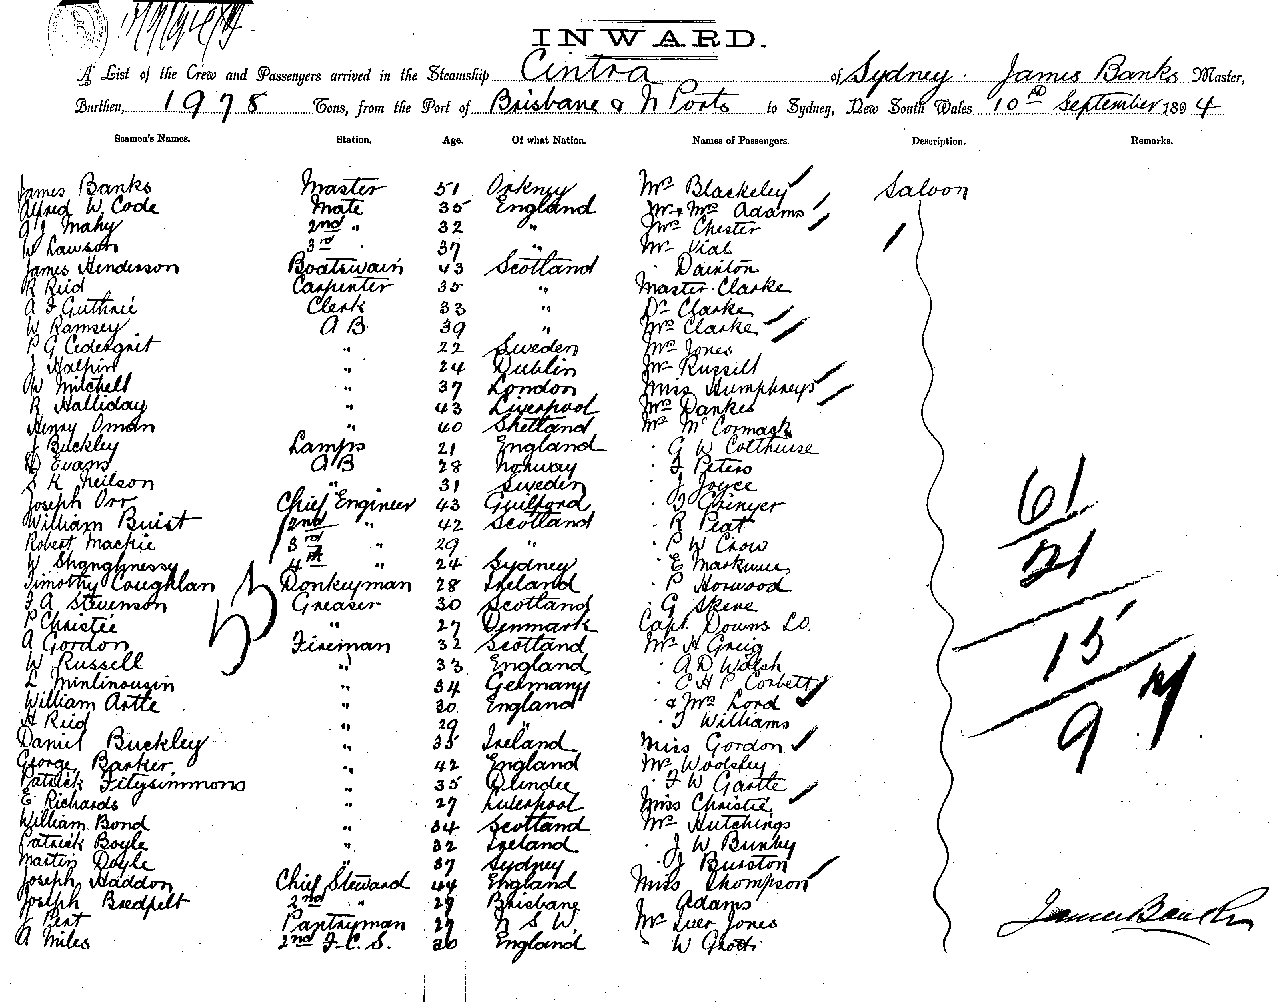 INWARD.
A List of the Crew and Passengers arrived in the Steamship Cintra of Sydney. James Banks Master,
Burthen, 1978 Tons, from the Port of Brisbane & N Ports to Sydney, New South Wales 10th September 1894
Seamen's Names. Station. Age. Of what Nation. Names of Passengers. Description. Remarks.
James Banks Master 51 Orkney Mrs Blackeley Saloon
Alfred W. Code Mate 35 England Mr & Mrs Adams
Mahy 2nd " 32 " Mrs Chester
W Lawson 3rd " 37 " Mr Vial
James Henderson Boatswain 43 Scotland " Dainton
R Reid Carpenter 35 " Master Clarke
A F Guthrie Clerk 33 " Dr Clarke
W Ramsey A B 39 " Mrs Clarke
P G " 22 Sweden Mrs Jones
J Halpin " 24 Dublin Mr Russill
W Mitchell " 37 London Miss Humphreys
R Halliday " 43 Liverpool Mrs Dankes
Henry Oman " 40 Shetland Mr McCormack
J Buckley Lamps 21 England " G W Colthouse
Evans A B 28 Norway " F Peters
K Neilson " 31 Sweden " J Joyce
Joseph Orr Chief Engineer 43 Guilford "
William Buist 2nd " 42 Scotland " R Peat
Robert Mackie 3rd " 29 " " P W Crow
W Shaughnessy 4th " 24 Sydney " E
Timothy Coughlan Donkeyman 28 Ireland " P Horwood
F A Stevenson Greaser 30 Scotland " G Skene
P Christie " 27 Denmark Capt. Downs
A Gordon Fireman 32 Scotland Mr H Greig
W Russell " 33 England " A D Walsh
L " 34 Germany " C H P Corbett
William Artle " 30 England " & Mrs Lord
H Reid " 29 " " F Williams
Daniel Buckley " 35 Ireland Miss Gordon
George Barker " 42 England Mr Woolsley
Patrick Fitzsimmons " 35 Dundee " F W Gartle
E Richards " 27 Liverpool Miss Christie
William Bond " 34 Scotland Mr Hutchings
Patrick Boyle " 32 Ireland " J W Bunby
Martin Doyle " 37 Sydney " J Burston
Joseph Haddon Chief Steward 44 England Miss Thompson
Joseph Bredfelt 2nd " 29 Brisbane " Adams
J Pert Pantryman 27 N S W. Mr Iver Jones
A Miles 2nd F. C. S. 20 England " W
53
61
21
15
9
James Banks